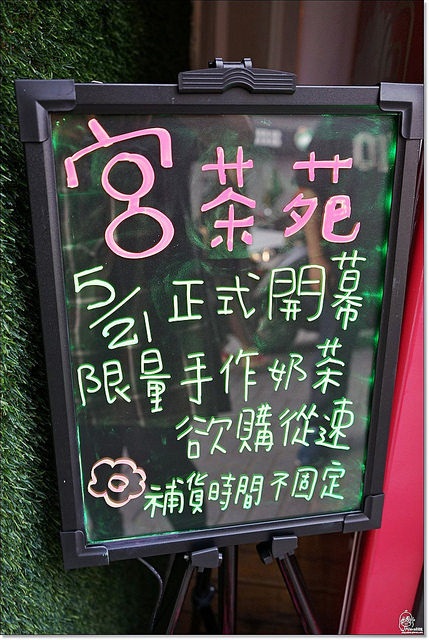 宮茶苑
5/21正式開幕
限量手作奶茶
欲購從速
補貨時間不固定